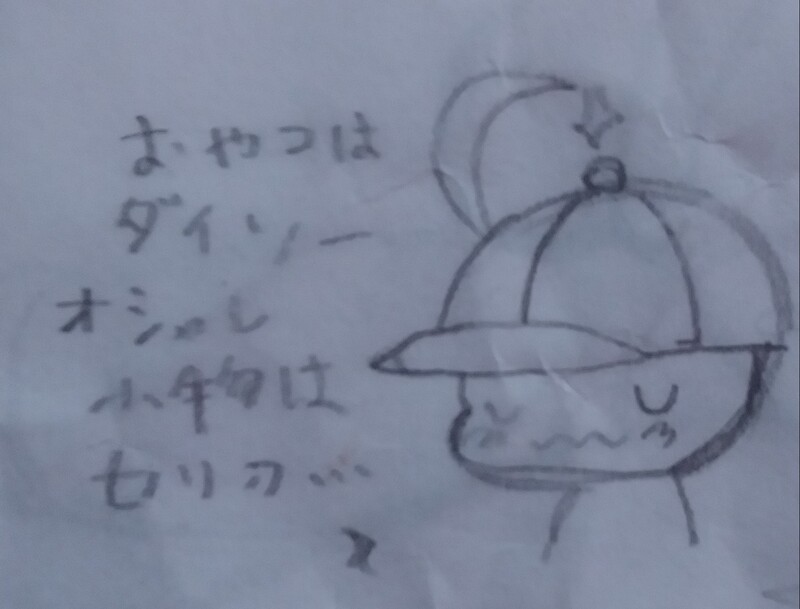 おやつは
ダイソー
オシャレ
小物は
セリア…